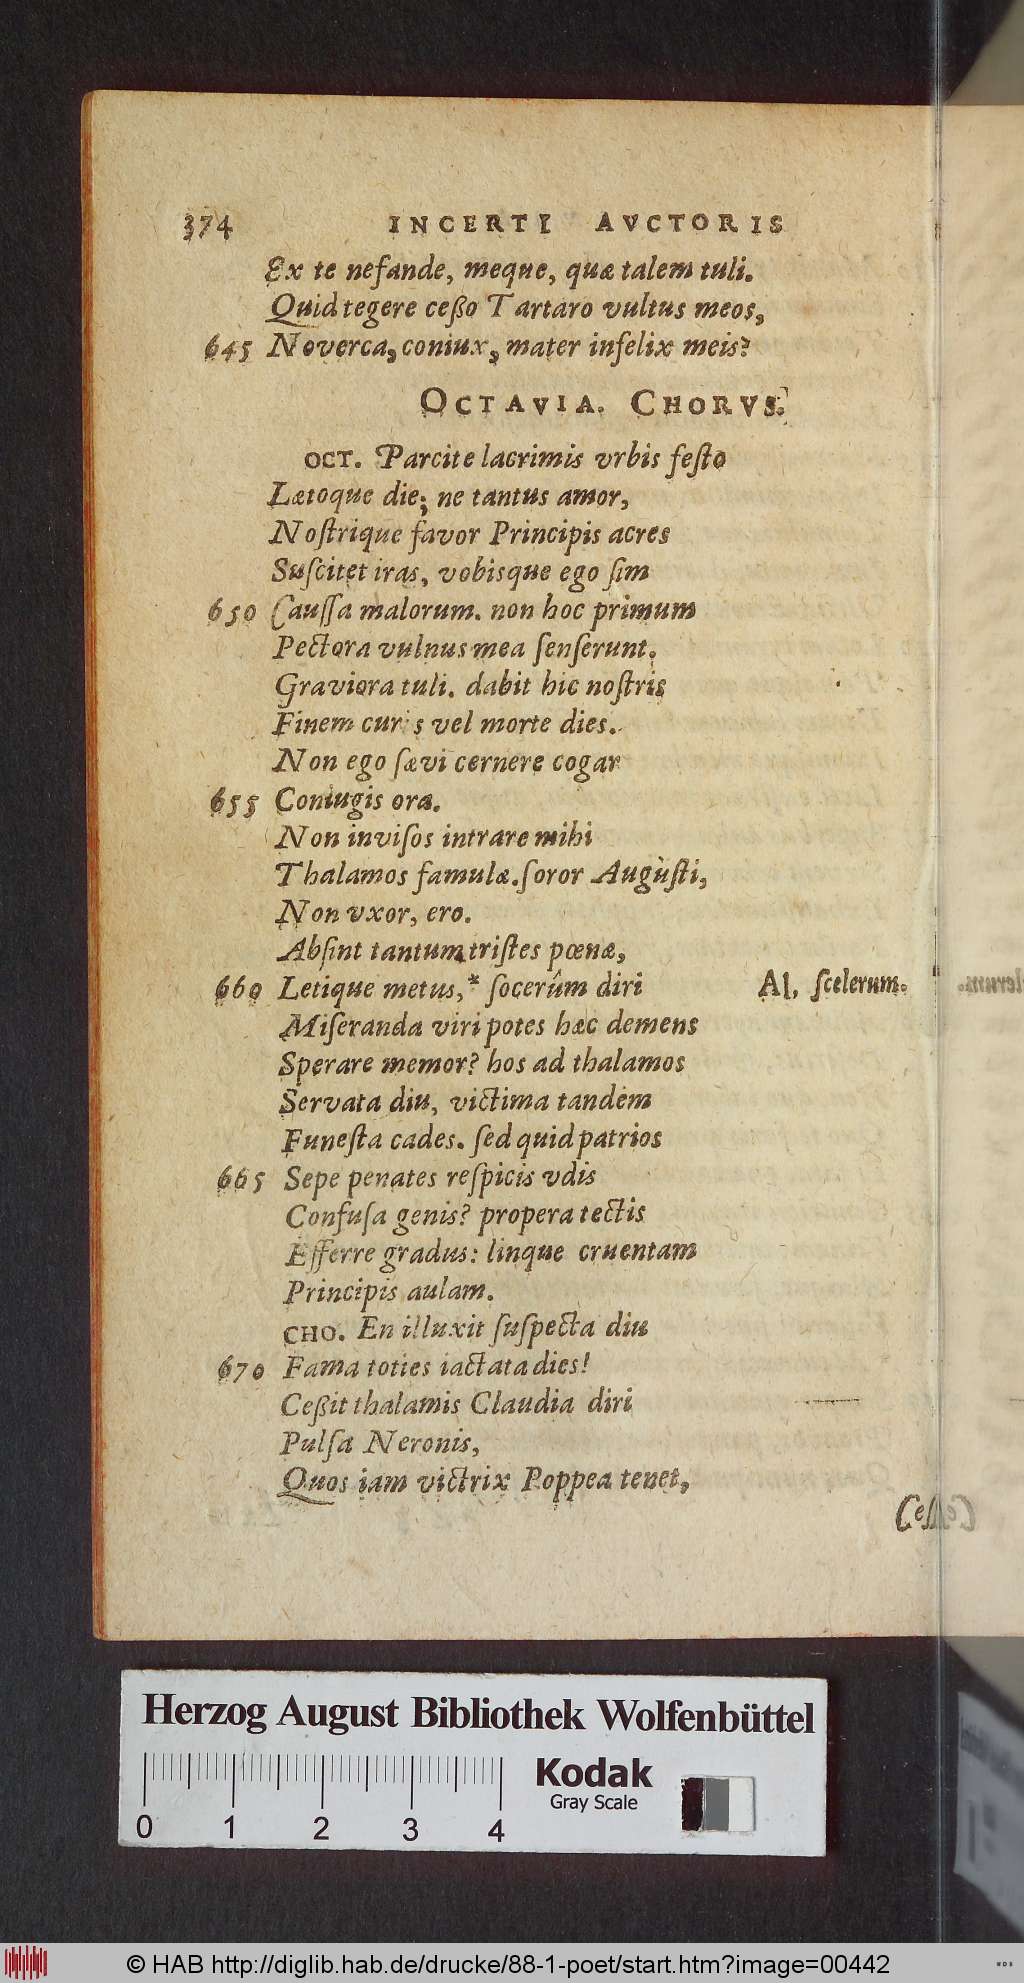 374 INCERTI AVCTORIS
Ex te nefande, meque, quæ talem tuli.
Quid tegere ceßo Tartaro vultus meos,
645 Noverca, coniux, mater infelix meis?
OCTAVIA. CHORVS.
OCT. Parcite lacrimis vrbis feſto
Lætoque die; ne tantus amor,
Noſtrique favor Principis acres
Suſcitet iras, vobisque ego ſim
650 Cauſſa malorum. non hoc primum
Pectora vulnus mea ſenſerunt.
Graviora tuli. dabit hic noſtris
Finem curis vel morte dies.
Non ego ſævi cernere cogar
655 Coniugis ora.
Non inviſos intrare mihi
Thalamos famulæ. ſoror Auguſti,
Non vxor, ero.
Abſint tantum triſtes pœnæ,
660 Letique metus,* ſocerûm diri Al. ſcelerum.
Miſeranda viri potes hæc demens
Sperare memor? hos ad thalamos
Servata diu, victima tandem
Funeſta cades. ſed quid patrios
665 Sepe penates reſpicis vdis
Confuſa genis? propera tectis
Efferre gradus: linque cruentam
Principis aulam.
CHO. En illuxit ſuſpecta diu
670 Fama toties iactata dies!
Ceßit thalamis Claudia diri
Pulſa Neronis,
Quos iam victrix Poppea tenet,
Herzog August Bibliothek Wolfenbüttel
Kodak
Gray Scale
0 1 2 3 4
© HAB http://diglib.hab.de/drucke/88-1-poet/start.htm?image=00442